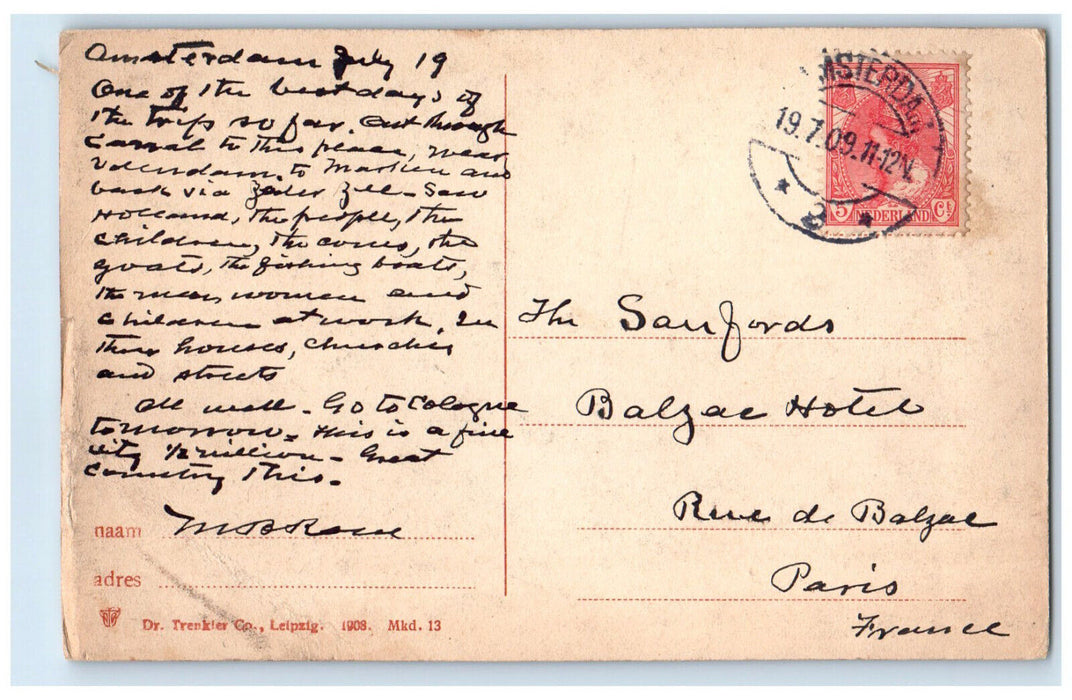 Amsterdam July 19
One of the best days of
the trip so far. Out through
Canal to this place, near
Volendam, to Marken and
back via Zuder Zee - Saw
Holland, the people, the
children, the cows, the
goats, the fishing boats,
the men women and
children at work, In
their houses, churches
and streets
All well - Go to Cologne
tomorrow - This is a fine
city 1/2 million - Great
Country This.
naam
adres
Dr. Trenkler Co., Leipzig. 1908. Mkd. 13
AMSTERDAM
19.7.09.11-12V.
2
5 NEDERLAND Ct
The Sanfords
Balzac Hotel
Rue de Balzac
Paris
France